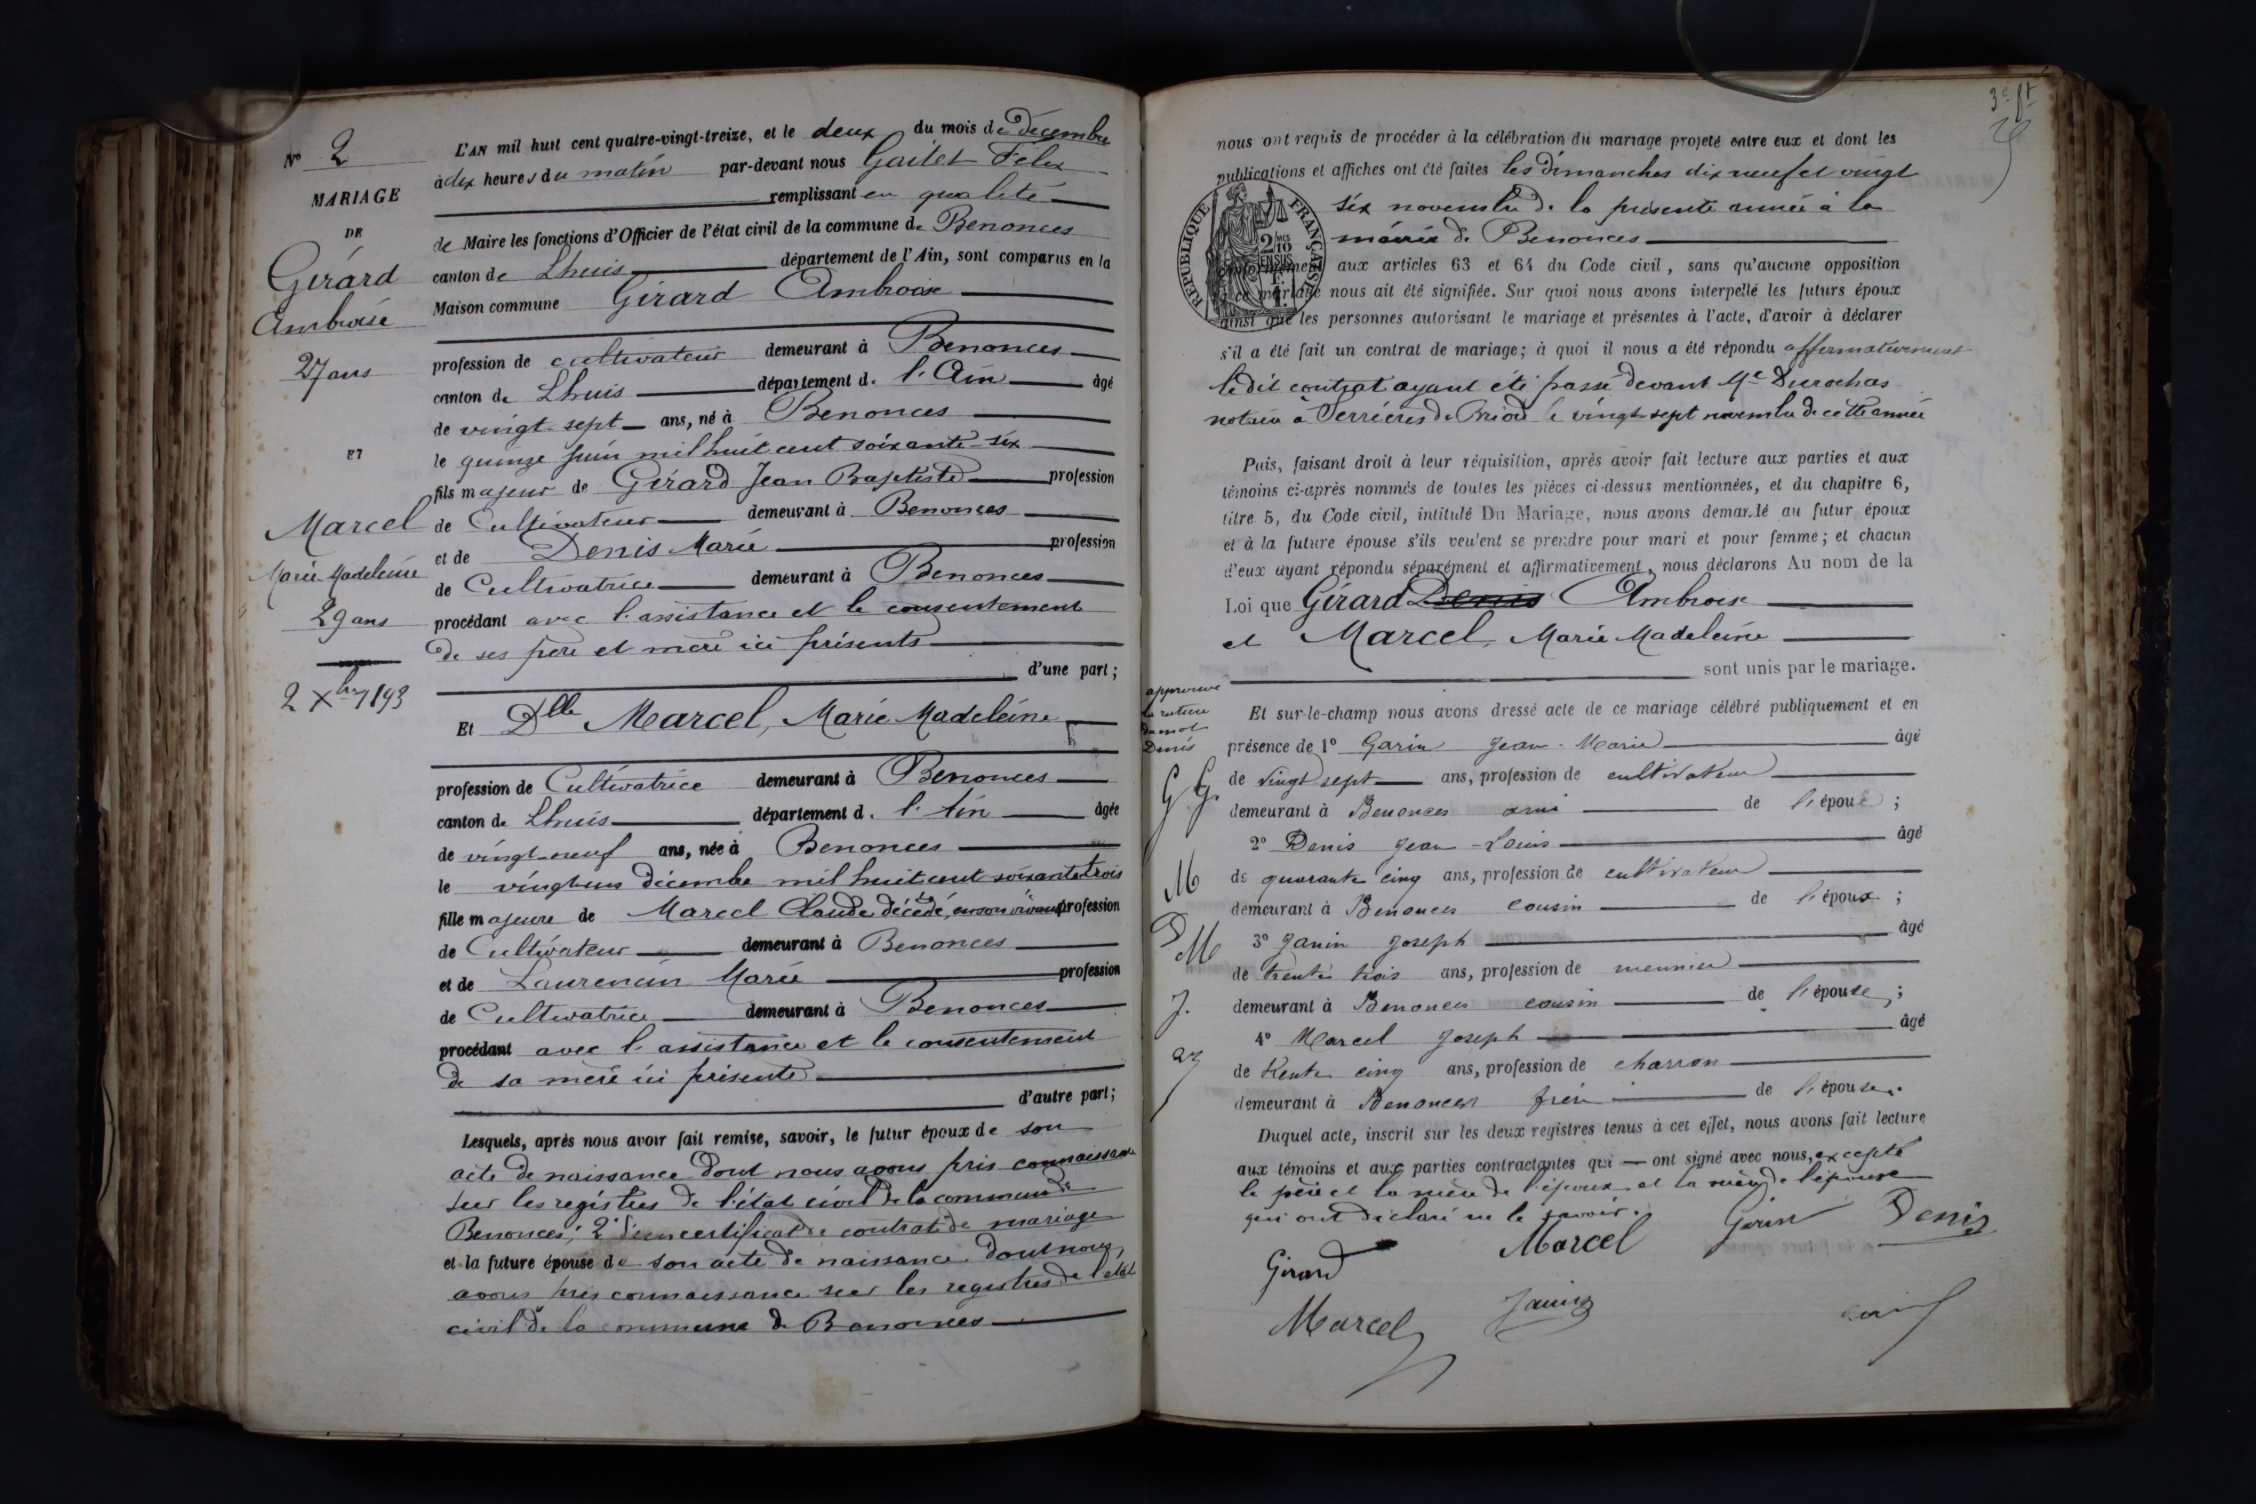 N° 2
MARIAGE
DE
Girard
Ambroise
27 ans
ET
Marcel
Marie Madeleine
29 ans
2 Xbre 1893
L'AN mil huit cent quatre-vingt-treize, et le deux du mois de décembre
à dix heures du matin par-devant nous Gaillet Félix
remplissant en qualité
de Maire les fonctions d'Officier de l'état civil de la commune de Benonces
canton de Lhuis département de l'Ain, sont comparus en la
Maison commune Girard Ambroise
profession de cultivateur demeurant à Benonces
canton de Lhuis département d. l'Ain âgé
de vingt-sept ans, né à Benonces
le quinze juin mil huit cent soixante-six
fils majeur de Girard Jean Baptiste profession
de Cultivateur demeurant à Benonces
et de Denis Marie profession
de Cultivatrice demeurant à Benonces
procédant avec l'assistance et le consentement
de ses père et mère ici présents
d'une part;
Et Dlle Marcel, Marie Madeleine
profession de Cultivatrice demeurant à Benonces
canton de Lhuis département d. l'Ain âgée
de vingt-neuf ans, née à Benonces
le vingt-un décembre mil huit cent soixante trois
fille majeure de Marcel Claude décédé, en son vivant profession
de Cultivateur demeurant à Benonces
et de Laurencin Marie profession
de Cultivatrice demeurant à Benonces
procédant avec l'assistance et le consentement
de sa mère ici présente
d'autre part;
Lesquels, après nous avoir fait remise, savoir, le futur époux de son
acte de naissance dont nous avons pris connaissance
sur les registres de l'état civil de la commune de
Benonces; 2° d'un certificat de contrat de mariage
et la future épouse de son acte de naissance dont nous
avons pris connaissance sur les registres de l'état
civil de la commune de Benonces
3e ft
nous ont requis de procéder à la célébration du mariage projeté entre eux et dont les
publications et affiches ont été faites les dimanches dix neuf et vingt
six novembre de la présente année à la
mairie de Benonces
RÉPUBLIQUE FRANÇAISE
2/10 MES
EN SUS
conformément aux articles 63 et 64 du Code civil, sans qu'aucune opposition
à ce mariage nous ait été signifiée. Sur quoi nous avons interpellé les futurs époux
ainsi que les personnes autorisant le mariage et présentes à l'acte, d'avoir à déclarer
s'il a été fait un contrat de mariage; à quoi il nous a été répondu affirmativement
le dit contrat ayant été passé devant Me Durochas
notaire à Serrières de Briord le vingt sept novembre de cette année
Puis, faisant droit à leur réquisition, après avoir fait lecture aux parties et aux
témoins ci-après nommés de toutes les pièces ci-dessus mentionnées, et du chapitre 6,
titre 5, du Code civil, intitulé Du Mariage, nous avons demandé au futur époux
et à la future épouse s'ils veulent se prendre pour mari et pour femme; et chacun
d'eux ayant répondu séparément et affirmativement, nous déclarons Au nom de la
Loi que Girard Denis Ambroise
et Marcel, Marie Madeleine
sont unis par le mariage.
approuvé
la rature
du mot
Denis
G G
M
D
M
J.
Et sur-le-champ nous avons dressé acte de ce mariage célébré publiquement et en
présence de 1° Garin Jean-Marie âgé
de vingt sept ans, profession de cultivateur
demeurant à Benonces ami de l'époux;
2° Denis Jean-Louis âgé
de quarante cinq ans, profession de cultivateur
demeurant à Benonces cousin de l'époux;
3° Janin Joseph âgé
de trente trois ans, profession de meunier
demeurant à Benonces cousin de l'épouse;
4° Marcel Joseph âgé
de trente cinq ans, profession de charron
demeurant à Benonces frère de l'épouse.
Duquel acte, inscrit sur les deux registres tenus à cet effet, nous avons fait lecture
aux témoins et aux parties contractantes qui ont signé avec nous, excepté
le père et la mère de l'époux et la mère de l'épouse
qui ont déclaré ne le savoir.
Girard Marcel Garin Denis
Marcel Janin